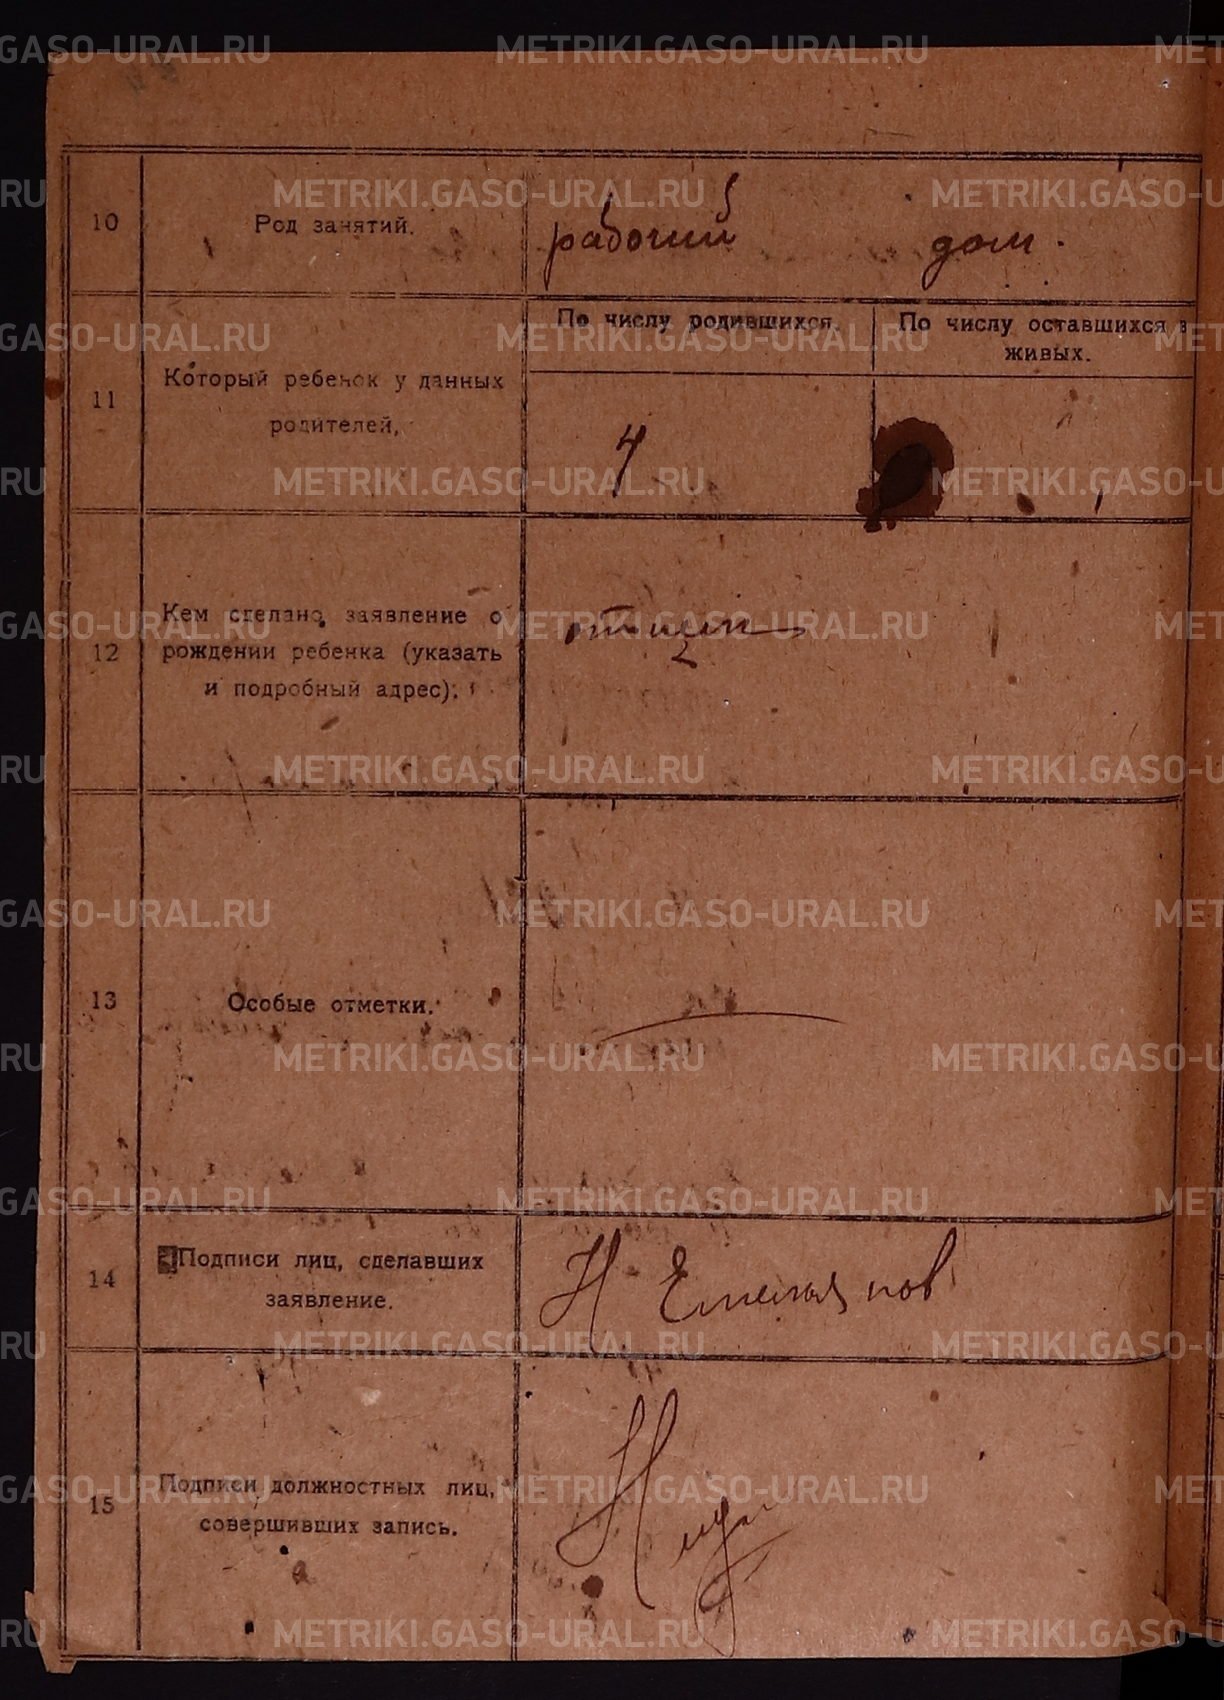 METRIKI.GASO-URAL.RU
10 Род занятий. рабочий дом.
По числу родившихся. По числу оставшихся в
живых.
11 Который ребенок у данных
родителей.
4
12 Кем сделано заявление о
рождении ребенка (указать
и подробный адрес).
отцом
13 Особые отметки.
14 Подписи лиц, сделавших
заявление.
Н Емельянов
15 Подписи должностных лиц,
совершивших запись.